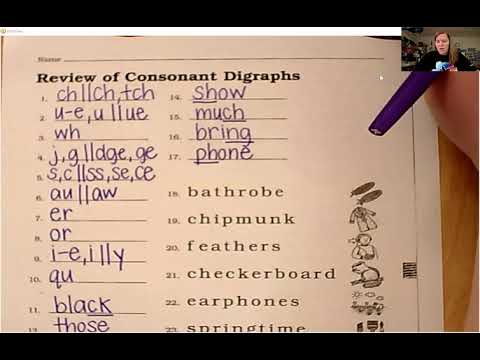 Name
Review of Consonant Digraphs
1. ch||ch, tch
2. u-e, u||ue
3. wh
4. j, g||dge, ge
5. s, c||ss, se, ce
6. au||aw
7. er
8. or
9. i-e, i||y
10. qu
11. black
12. those
14. show
15. much
16. bring
17. phone
18. bathrobe
19. chipmunk
20. feathers
21. checkerboard
22. earphones
23. springtime